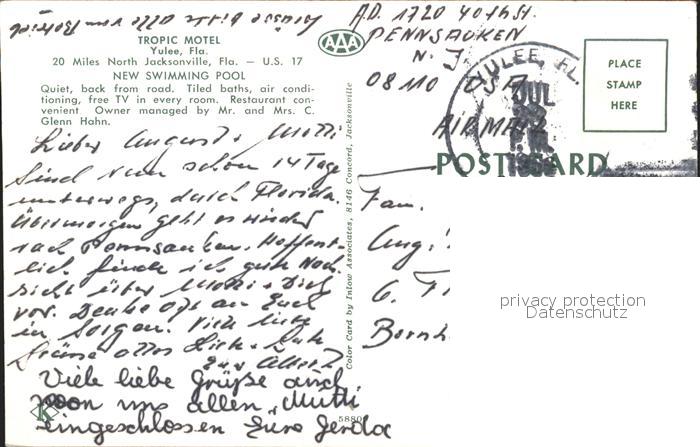 Grüsse bitte alle vom Betrieb
A.D. 1720 40th St.
PENNSAUKEN
N. J.
08110 USA
AIR MAIL
TROPIC MOTEL
Yulee, Fla.
20 Miles North Jacksonville, Fla. — U.S. 17
NEW SWIMMING POOL
Quiet, back from road. Tiled baths, air condi-
tioning, free TV in every room. Restaurant con-
venient. Owner managed by Mr. and Mrs. C.
Glenn Hahn.
AAA
YULEE, FL.
JUL
PLACE
STAMP
HERE
POST CARD
Lieber August + Mutti
Sind nun schon 14 Tage
unterwegs, durch Florida.
Übermorgen geht es wieder
nach Pennsauken. Hoffent-
lich finde ich gute Nach-
richt über Mutti + Dich
vor. Denke oft an Euch
in Sorgen. Viele liebe
Grüsse
Euer Albert
Viele liebe Grüße auch
von uns allen, Mutti
eingeschlossen Eure Gerda
K
5880
Color Card by Inlow Associates, 8146 Concord, Jacksonville
Fam.
Aug.
6.
Bornh
privacy protection
Datenschutz